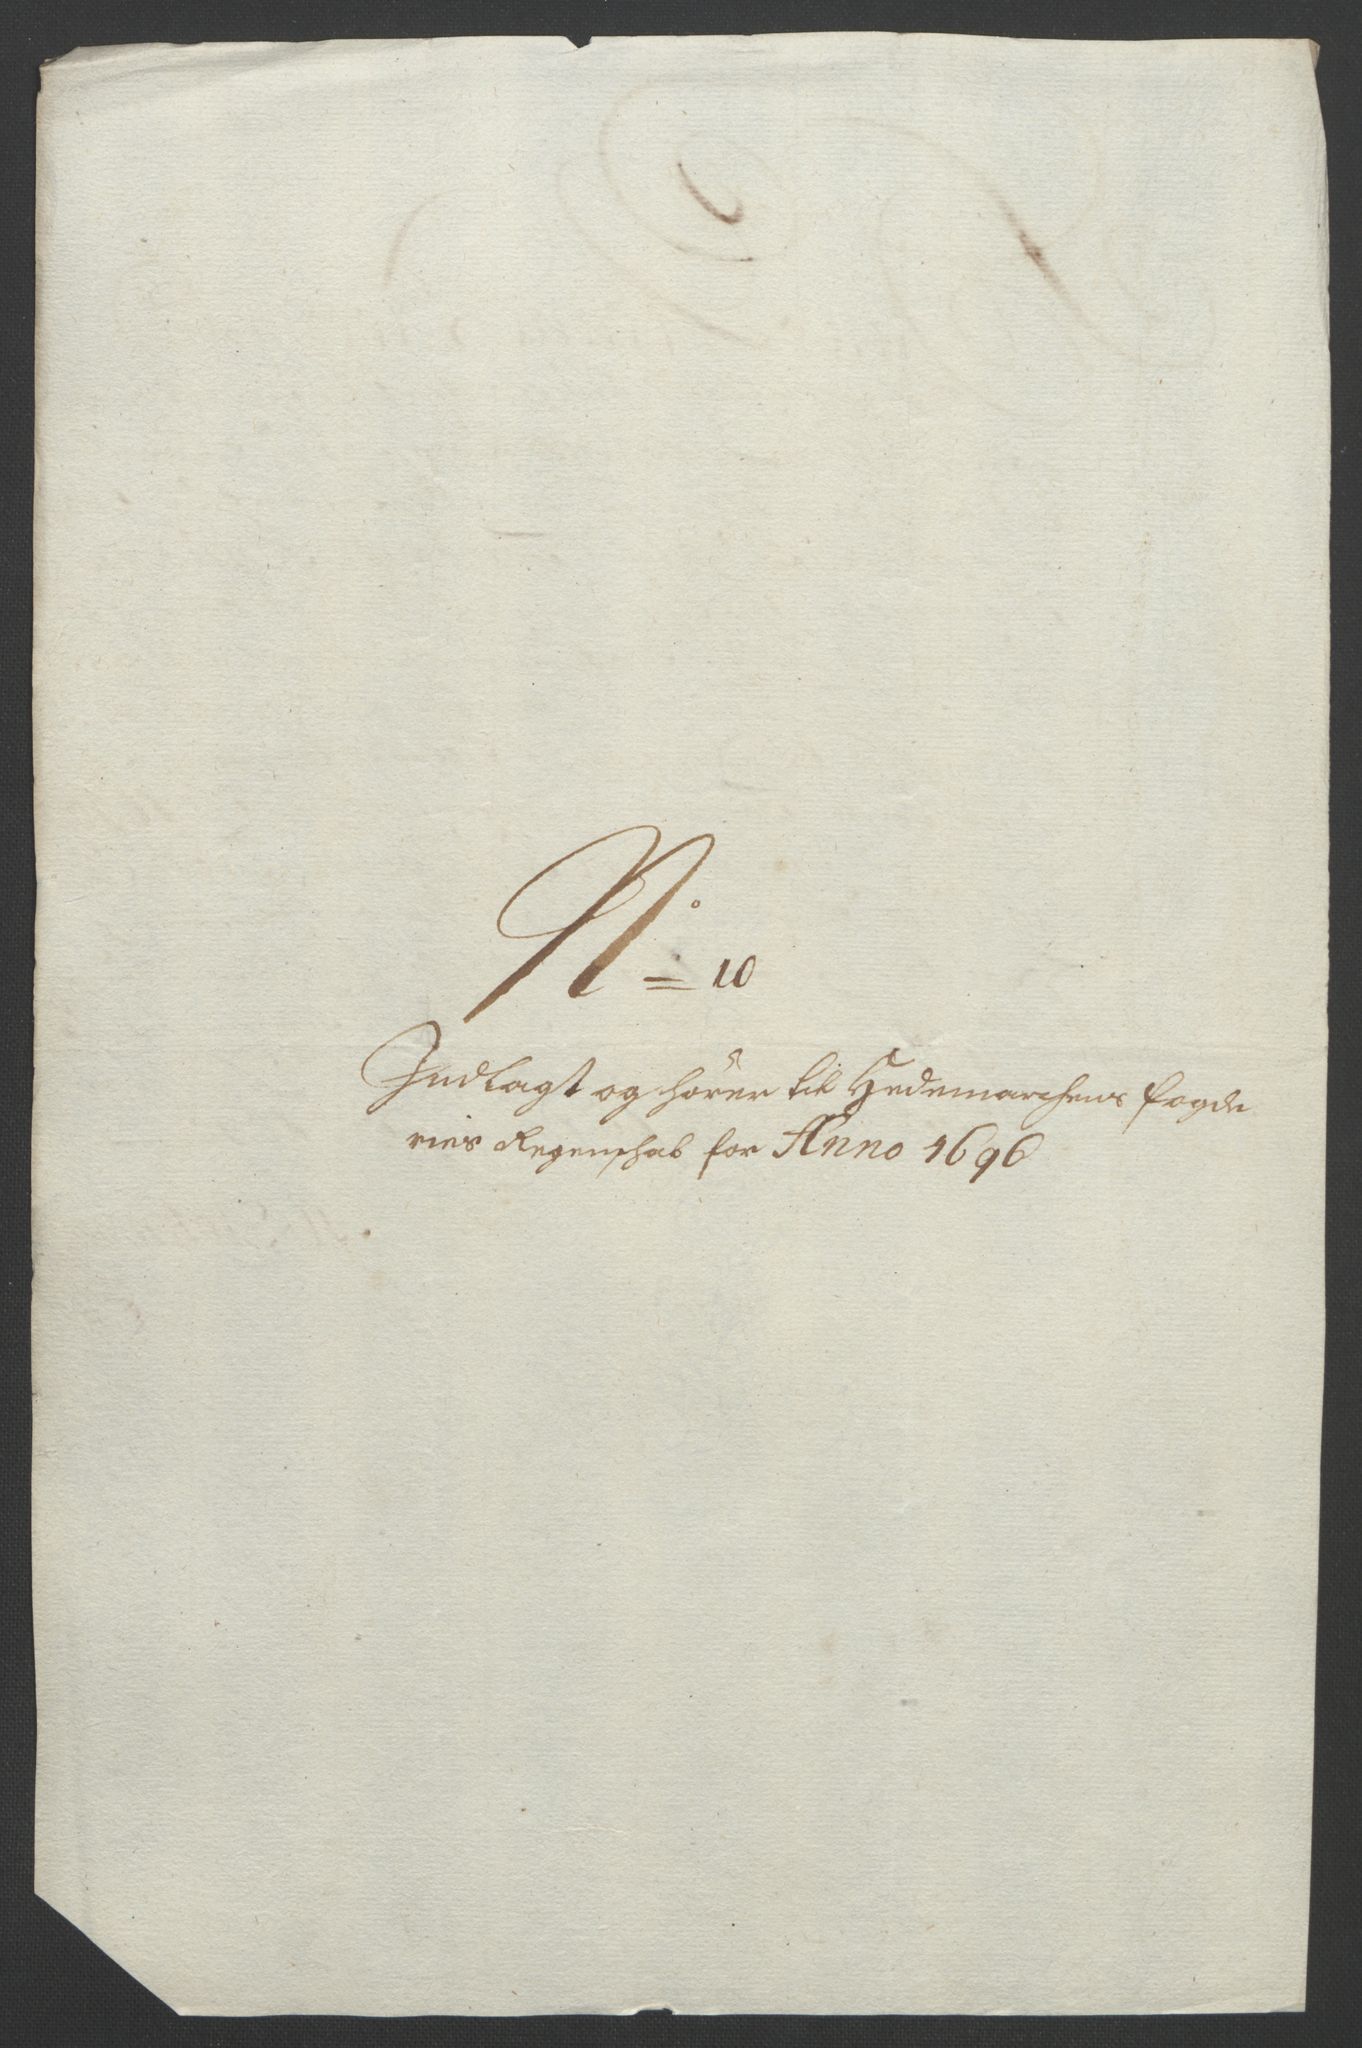 No = 10
Indlagt og hører til Hedemarchens fogde
ries Regenschab for Anno 1696